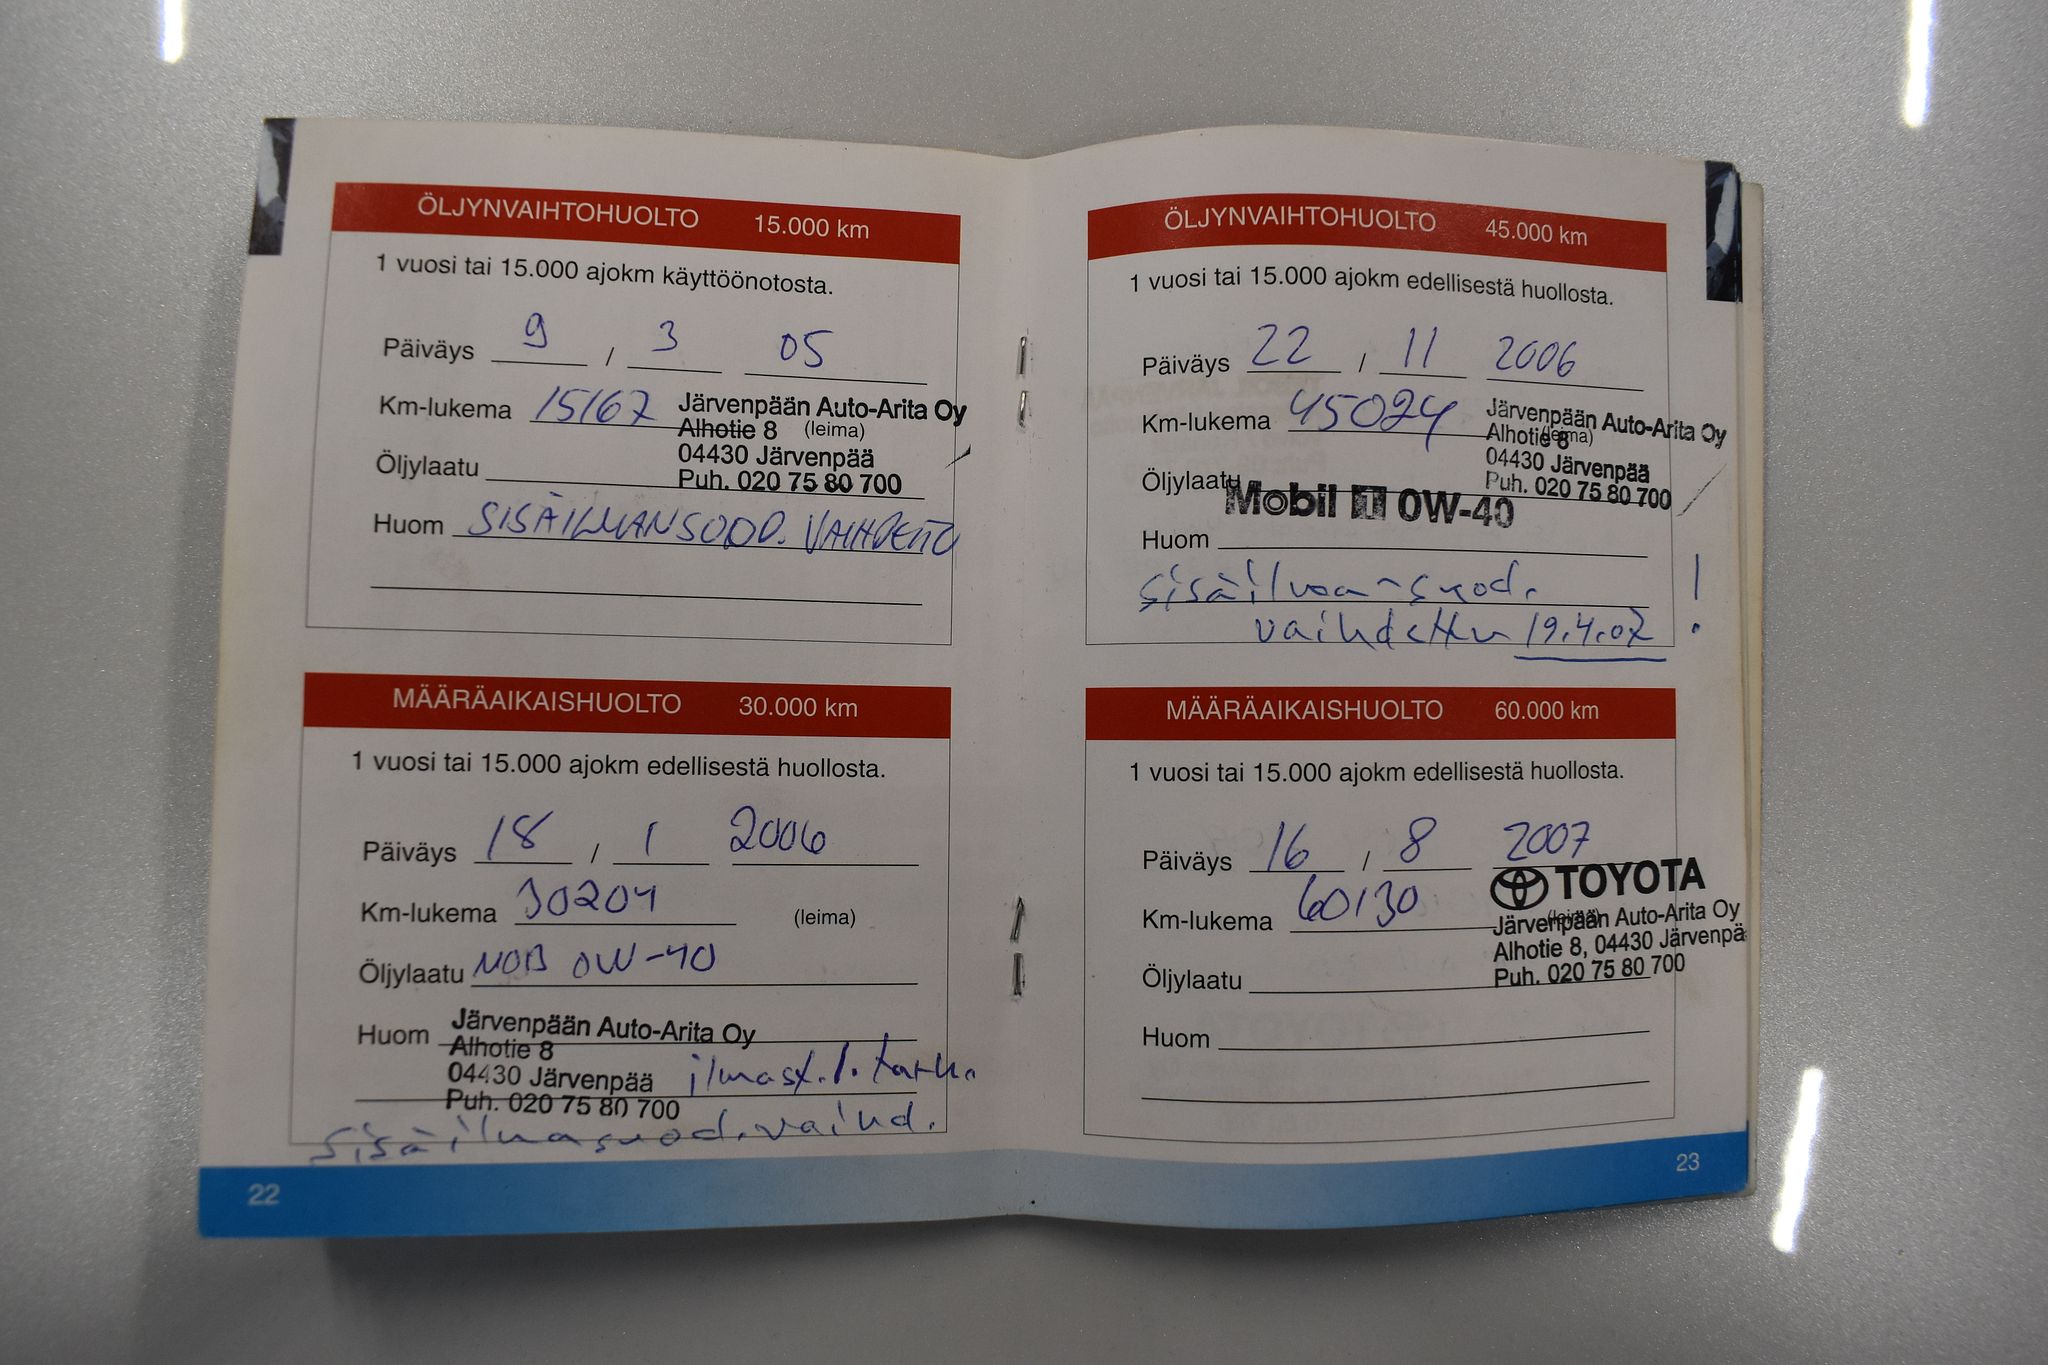 ÖLJYNVAIHTOHUOLTO 15.000 km
1 vuosi tai 15.000 ajokm käyttöönotosta.
Päiväys 9 / 3 05
Km-lukema 15167
Järvenpään Auto-Arita Oy
Alhotie 8 (leima)
04430 Järvenpää
Öljylaatu
Puh. 020 75 80 700
Huom SISÄILMANSUOD. VAIHDETTU
MÄÄRÄAIKAISHUOLTO 30.000 km
1 vuosi tai 15.000 ajokm edellisestä huollosta.
Päiväys 18 / 1 2006
Km-lukema 30204 (leima)
Öljylaatu MOB 0W-40
Huom
Järvenpään Auto-Arita Oy
Alhotie 8
04430 Järvenpää ilmast.l. tark.
Puh. 020 75 80 700
sisäilmasuod. vaihd.
22
ÖLJYNVAIHTOHUOLTO 45.000 km
1 vuosi tai 15.000 ajokm edellisestä huollosta.
Päiväys 22 / 11 2006
Km-lukema 45024
Järvenpään Auto-Arita Oy
Alhotie 8 (leima)
04430 Järvenpää
Öljylaatu
Puh. 020 75 80 700
Mobil 1 0W-40
Huom
sisäilman suod. !
vaihdettu 19.4.07
MÄÄRÄAIKAISHUOLTO 60.000 km
1 vuosi tai 15.000 ajokm edellisestä huollosta.
Päiväys 16 / 8 2007
TOYOTA
Km-lukema 60130 (leima)
Järvenpään Auto-Arita Oy
Alhotie 8, 04430 Järvenpä
Öljylaatu
Puh. 020 75 80 700
Huom
23